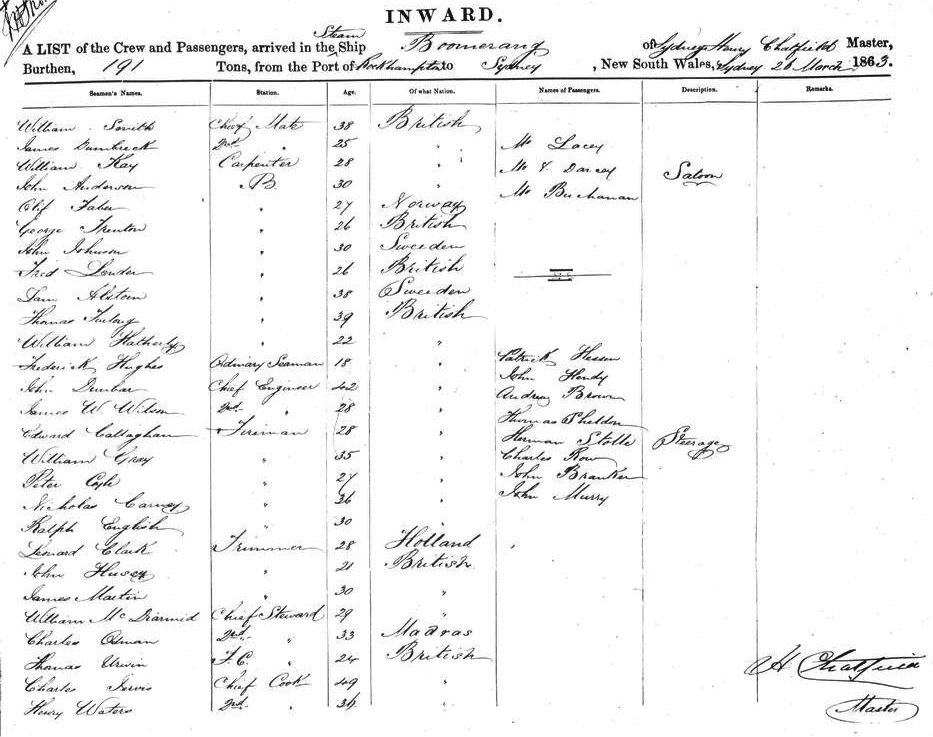 INWARD.
A LIST of the Crew and Passengers, arrived in the Steam Ship Boomerang of Sydney Henry Chatfield Master,
Burthen, 191 Tons, from the Port of Rockhampton to Sydney, New South Wales, Sydney 26 March 1863.
Seamen's Names. Station. Age. Of what Nation. Names of Passengers. Description. Remarks.
William Smith Chief Mate 38 British
James Dumbreck 2nd " 25 " Mr Lacey
William Kay Carpenter 28 " Mr Darcey Saloon
John Anderson AB 30 " Mr Buchanan
Olif Faber " 27 Norway
George Trenton " 26 British
John Johnson " 30 Sweeden
Fred " 26 British
" 38 Sweeden
Thomas Furlong " 39 British
William Hatherly " 22 "
Frederick Hughes Ordinary Seaman 18 " Patrick Hesson
John Dunbar Chief Engineer 42 " John Hendy
James W. Wilson 2nd " 28 " Andrew Brown
Edward Callaghan Fireman 28 " Thomas Sheldon
William Gray " 35 " Herman Stolle Steerage
Peter " 27 " Charles Row
Nicholas Carney " 26 " John Branker
Ralph English " 30 " John Murry
Leonard Clark Trimmer 28 Holland
John Husey " 21 British
James Martin " 30 "
William McDiarmid Chief Steward 29 "
Charles Osman 2nd " 33 Madras
Thomas Urwin F.C. " 24 British
Charles Jervis Chief Cook 49 "
Henry Waters 2nd " 34 "
H Chatfield
Master